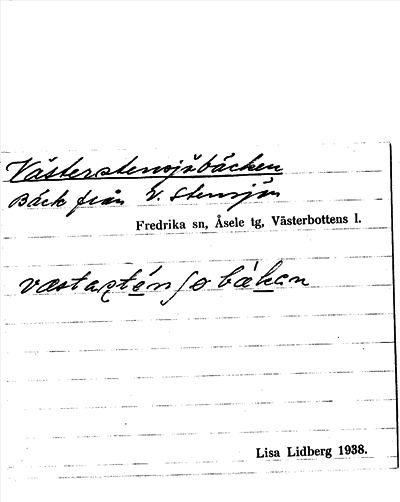 Västerstensjöbäcken
Bäck från V. Stensjön
Fredrika sn, Åsele tg, Västerbottens l.
Lisa Lidberg 1938.